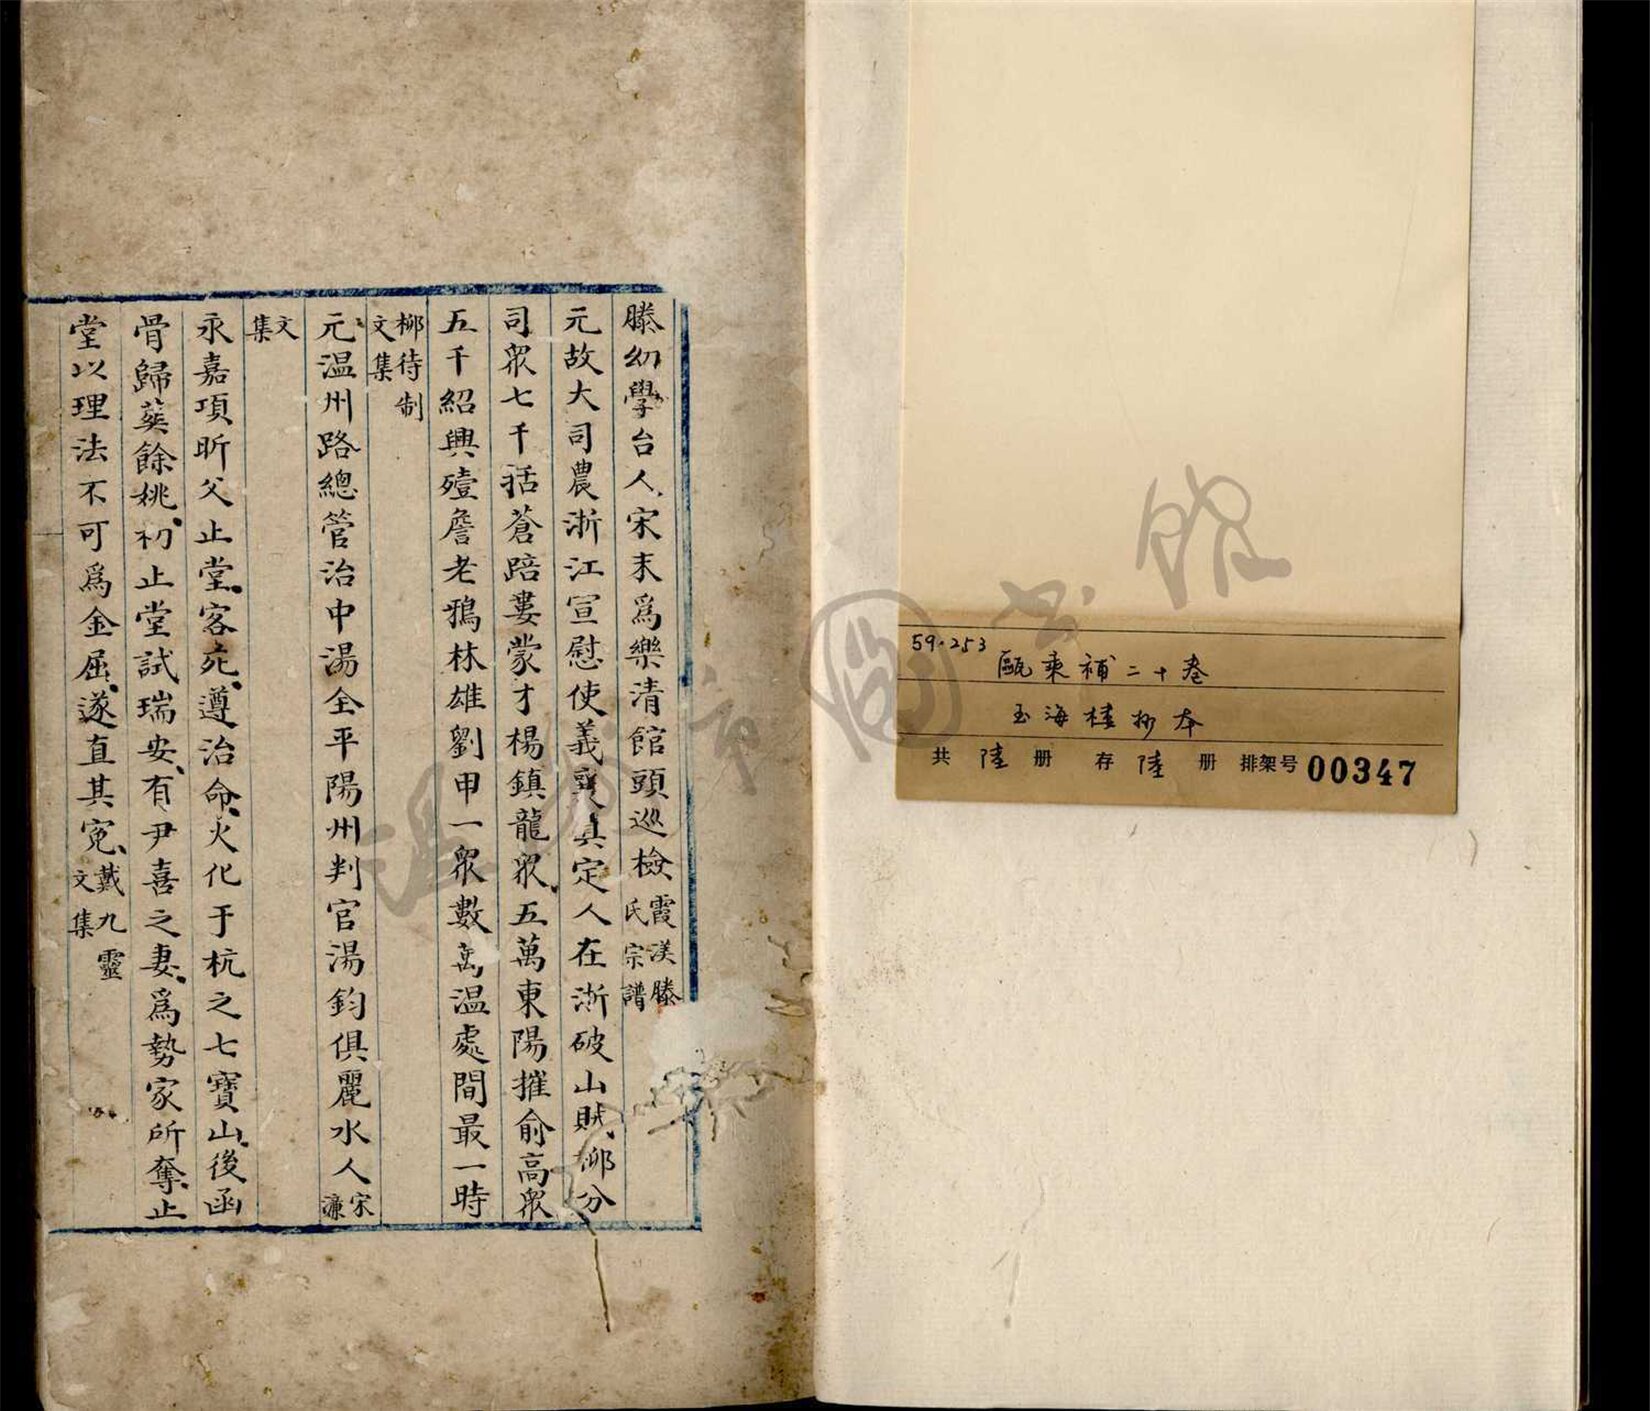 滕幼學台人宋末爲樂清館頭巡檢霞渼滕氏宗譜
元故大司農浙江宣慰使義襄真定人在浙破山賊柳分
司衆七千括蒼踣婁蒙才楊鎮龍衆五萬東陽摧俞高衆
五千紹興殪詹老鴉林雄劉甲一衆數萬温處間最一時
柳待制文集
元温州路總管治中湯全平陽州判官湯鈞俱麗水人宋濂
文集
永嘉項昕父止堂客死遵治命火化于杭之七寶山後函
骨歸葬餘姚初止堂試瑞安有尹喜之妻爲勢家所奪止
堂以理法不可爲金屈遂直其冤戴九靈文集
59.253
甌乘補二十卷
玉海樓抄本
共 陸 册 存 陸 册 排架号 00347
温州市圖书館